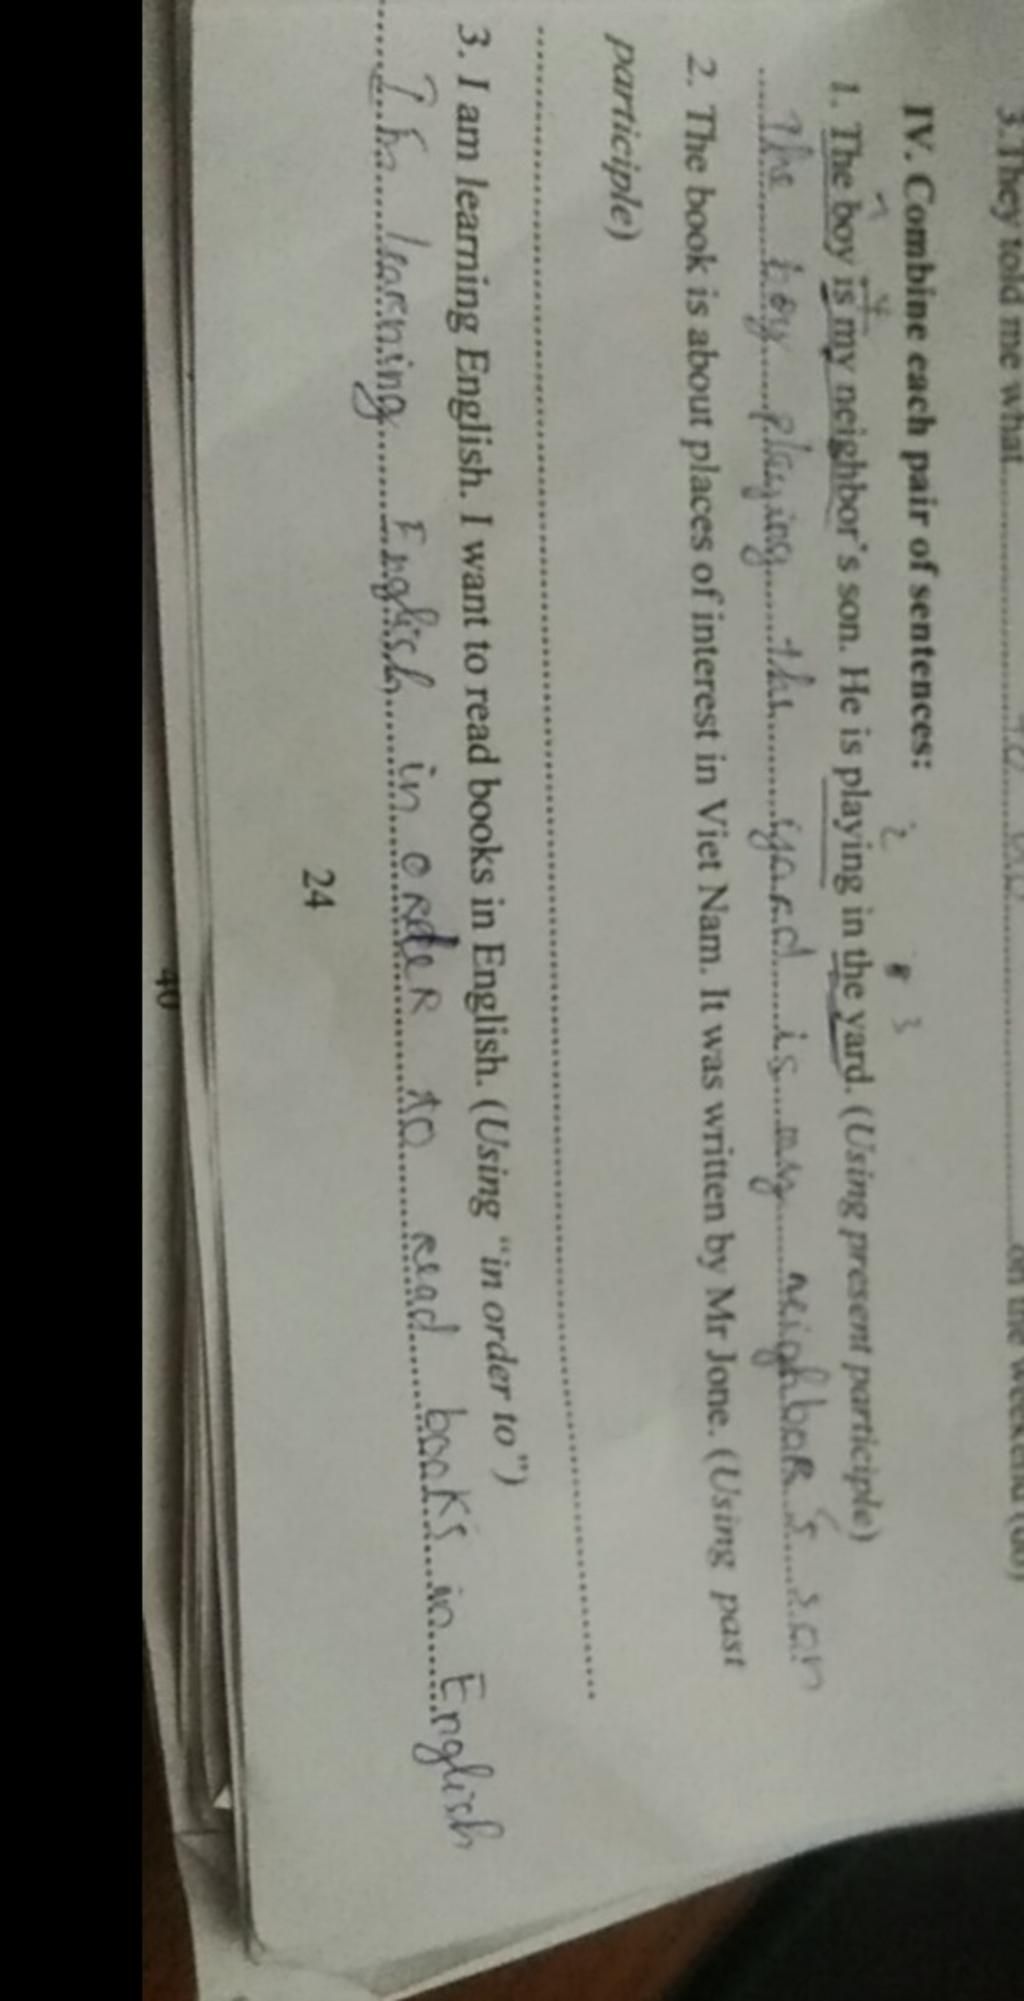 3.They told me what..............................on the weekend (do)
IV. Combine each pair of sentences:
1. The boy is my neighbor's son. He is playing in the yard. (Using present participle)
The boy playing the yard is my neighbor's son
2. The book is about places of interest in Viet Nam. It was written by Mr Jone. (Using past
participle)
3. I am learning English. I want to read books in English. (Using "in order to")
learning English in order to read books in English
24
40